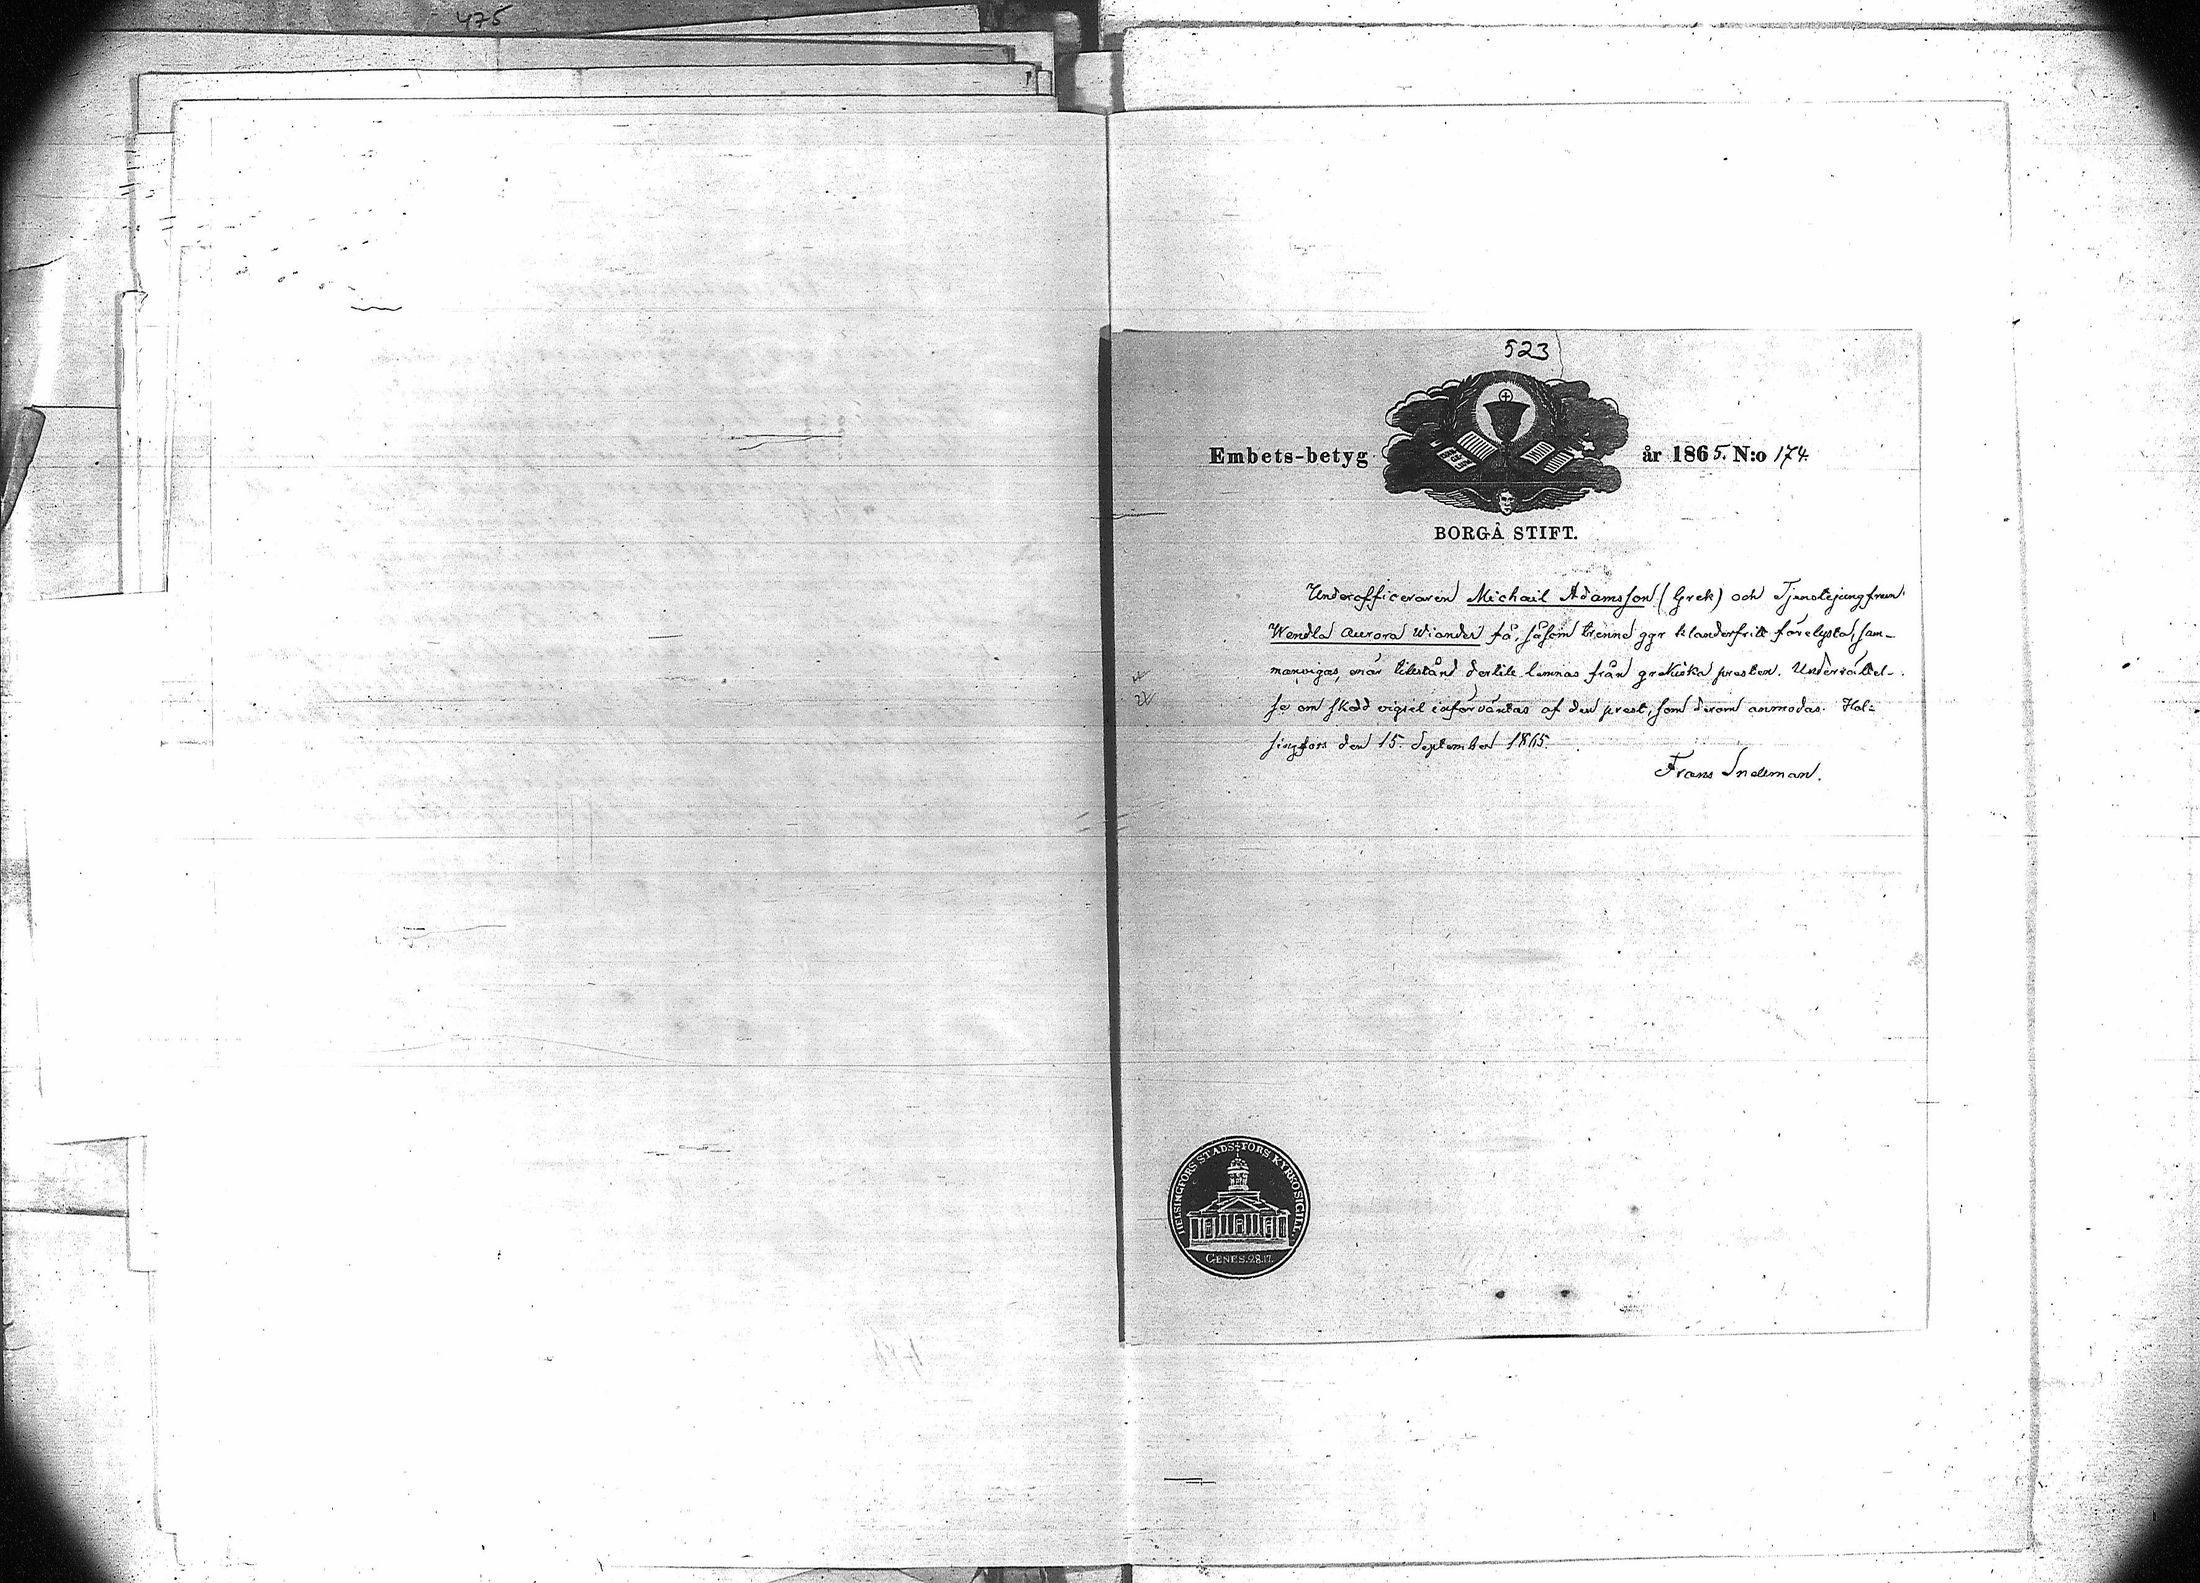 475
523
Embets-betyg år 1865. N:o 174.
BORGÅ STIFT.
Underofficeraren Michail Adamsson (Grek) och Tjenstejungfrun
Wendla Aurora Wiander få, såsom trenne ggr klanderfrittförelysta, sam-
manvigas, enär tillstånd dertill lemnas från grekiska presten. Underrättel-
se om skedd vigsel införväntas af den prest, som derom anmodas. Hel-
singfors den 15. September 1865.
Frans Snellman.
HELSINGFORS STADS FÖRS. KYRKO SIGILL.
GENES. 28.17.